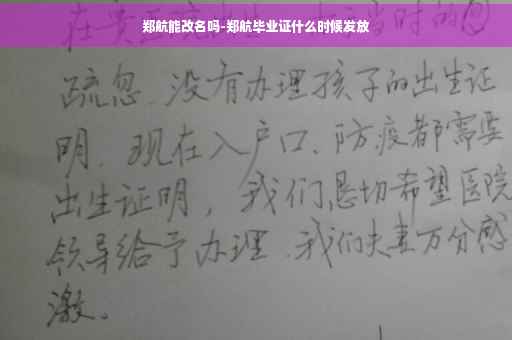 郑航能改名吗-郑航毕业证什么时候发放
当时的
疏忽、没有办理孩子的出生证
明、现在入户口、防疫都需要
出生证明，我们恳切希望医院
领导给予办理、我们夫妻万分感
激。